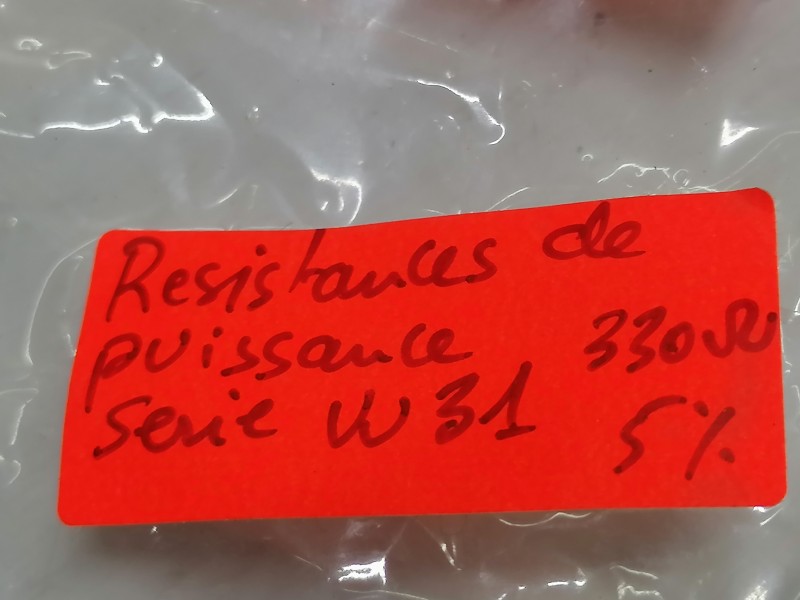 Resistances de
puissance 330Ω
serie W31 5%